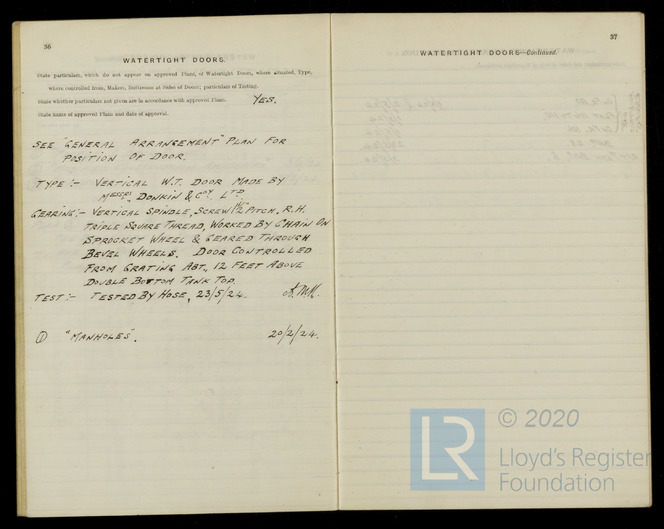 36
WATERTIGHT DOORS.
State particulars, which do not appear on approved Plans, of Watertight Doors, where situated, Type,
where controlled from, Maker, Stiffeners at Sides of Doors; particulars of Testing.
State whether particulars not given are in accordance with approved Plans. YES.
State name of approved Plan and date of approval.
SEE "GENERAL ARRANGEMENT" PLAN FOR
POSITION OF DOOR.
TYPE:- VERTICAL W.T. DOOR MADE BY
MESSRS DONKIN & COY. LTD.
GEARING:- VERTICAL SPINDLE, SCREW 1½ PITCH, R.H.
TRIPLE SQUARE THREAD, WORKED BY CHAIN ON
SPROCKET WHEEL & GEARED THROUGH
BEVEL WHEELS. DOOR CONTROLLED
FROM GRATING ABT., 12 FEET ABOVE
DOUBLE BOTTOM TANK TOP.
TEST:- TESTED BY HOSE, 23/5/24.
① "MANHOLES". 20/2/24.
37
WATERTIGHT DOORS—Continued.
LR
© 2020
Lloyd's Register
Foundation